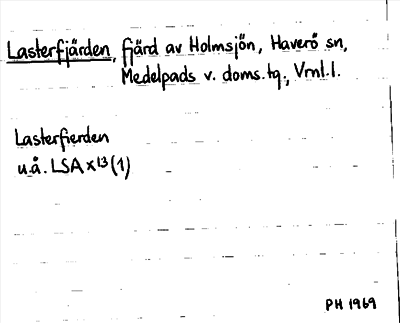 Lasterfjärden, fjärd av Holmsjön, Haverö sn,
Medelpads v. doms.tg., Vrnl.l.
Lasterfierden
u.å. LSA X13(1)
PH 1969